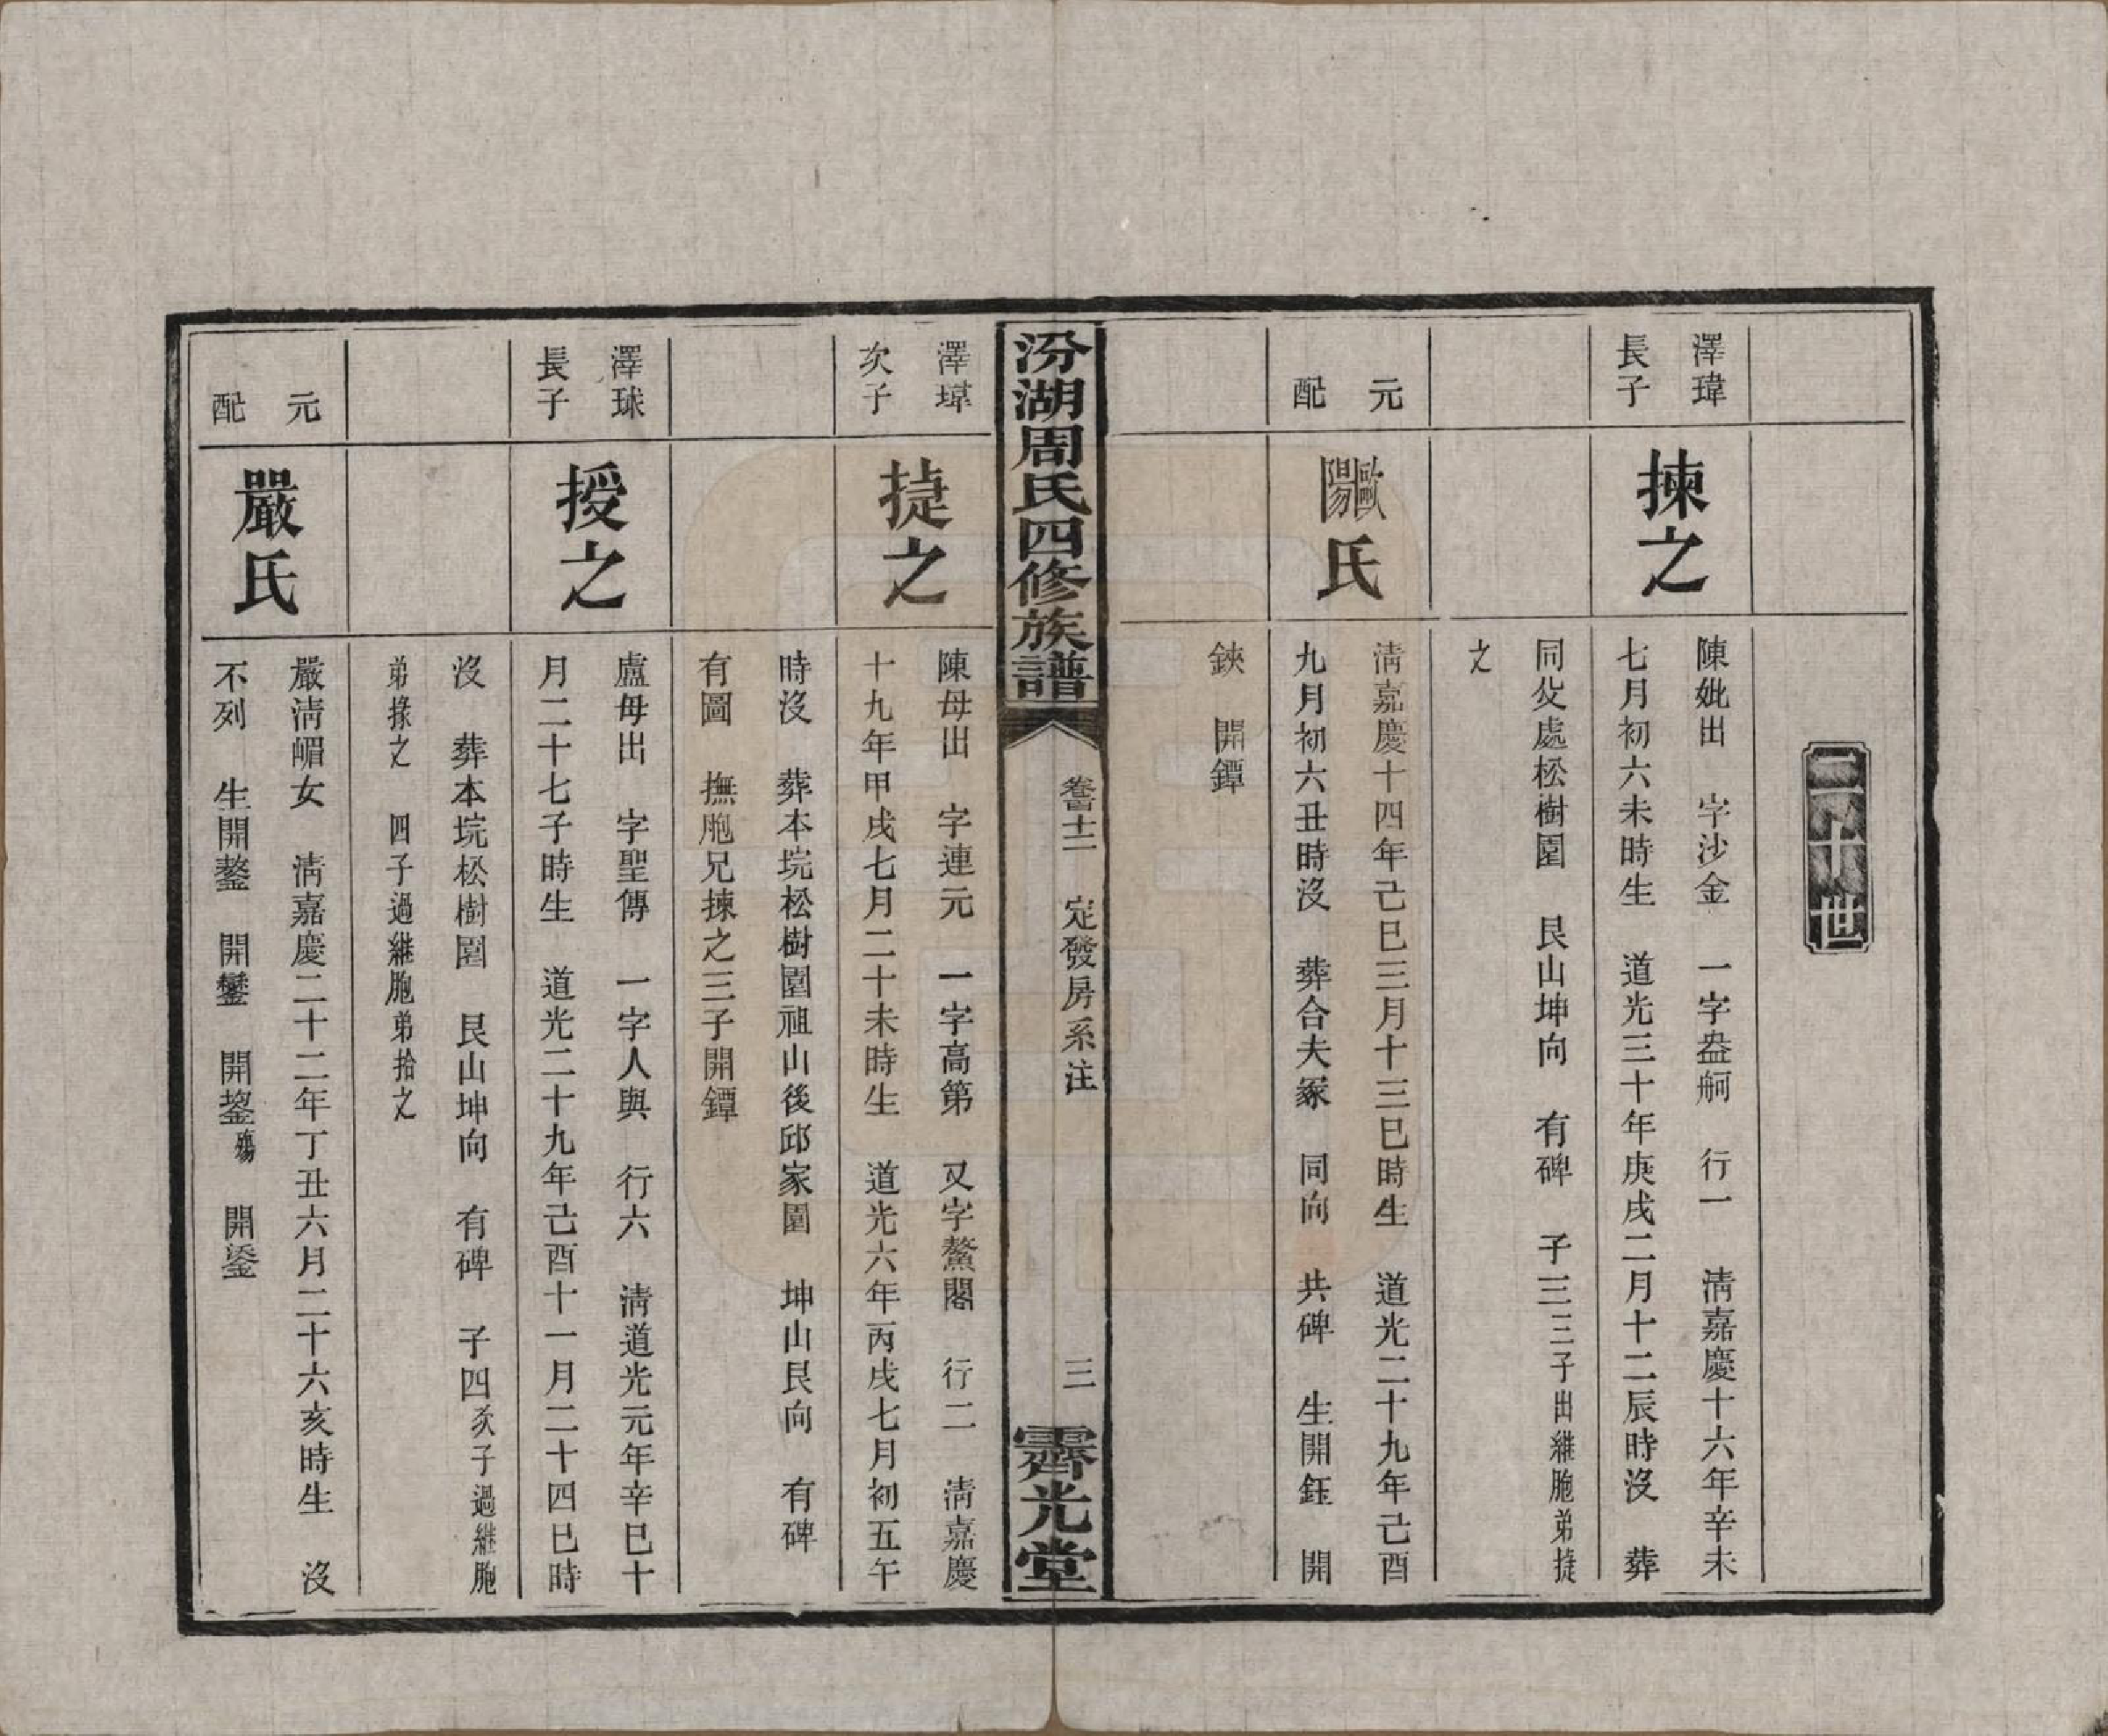 二十世
澤瑋
長子
揀之
陳妣出　字沙金　一字盎舸　行一　淸嘉慶十六年辛未
七月初六未時生　道光三十年庚戌二月十二辰時沒　葬
同父處松樹園　艮山坤向　有碑　子三三子出繼胞弟㨗
之
元
配
歐陽氏
淸嘉慶十四年己巳三月十三巳時生　道光二十九年己酉
九月初六丑時沒　葬合夫冢　同向　共碑　生開鈺　開
鋏　開鐔
汾湖周氏四修族譜
卷百十二　定發房系注
三
霽光堂
澤瑋
次子
㨗之
陳母出　字連元　一字高第　又字鰲閣　行二　淸嘉慶
十九年甲戌七月二十未時生　道光六年丙戌七月初五午
時沒　葬本垸松樹園祖山後邱家園　坤山艮向　有碑
有圖　撫胞兄揀之三子開鐔
澤球
長子
授之
盧母出　字聖傳　一字人與　行六　淸道光元年辛巳十
月二十七子時生　道光二十九年己酉十一月二十四巳時
沒　葬本垸松樹園　艮山坤向　有碑　子四次子過繼胞
弟掾之　四子過繼胞弟拾之
元
配
嚴氏
嚴淸嵋女　淸嘉慶二十二年丁丑六月二十六亥時生　沒
不列　生開鏊　開鑾　開鋆殤　開鋈